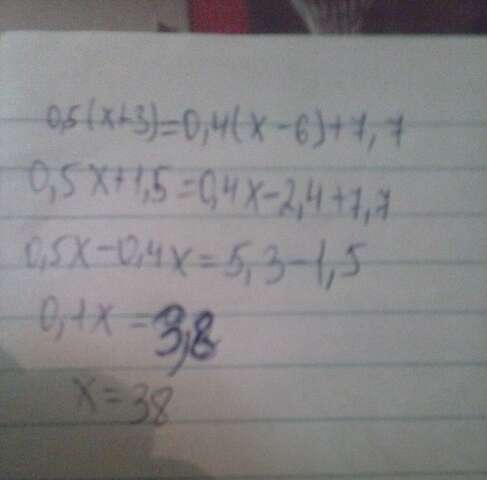 0,5(x+3)=0,4(x-6)+7,7
0,5x+1,5=0,4x-2,4+7,7
0,5x-0,4x=5,3-1,5
0,1x=3,8
x=38